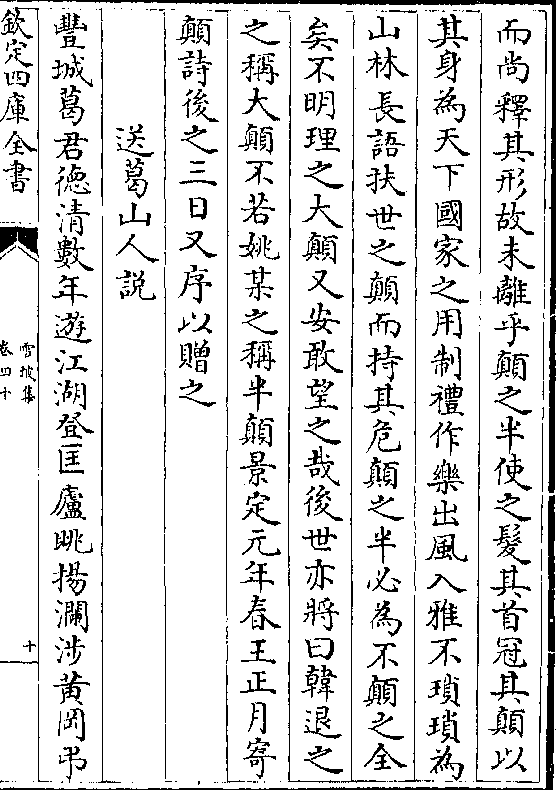 而尚釋其形故未離乎顛之半使之髮其首冠其顛以
其身為天下國家之用制禮作樂出風入雅不瑣瑣為
山林長語扶世之顛而持其危顛之半必為不顛之全
矣不明理之大顛又安敢望之哉後世亦將曰韓退之
之稱大顛不若姚某之稱半顛景定元年春王正月寄
顛詩後之三日又序以贈之
送葛山人説
豐城葛君德清數年遊江湖登匡廬眺揚瀾涉黃岡弔
欽定四庫全書
雪坡集
卷四十
十